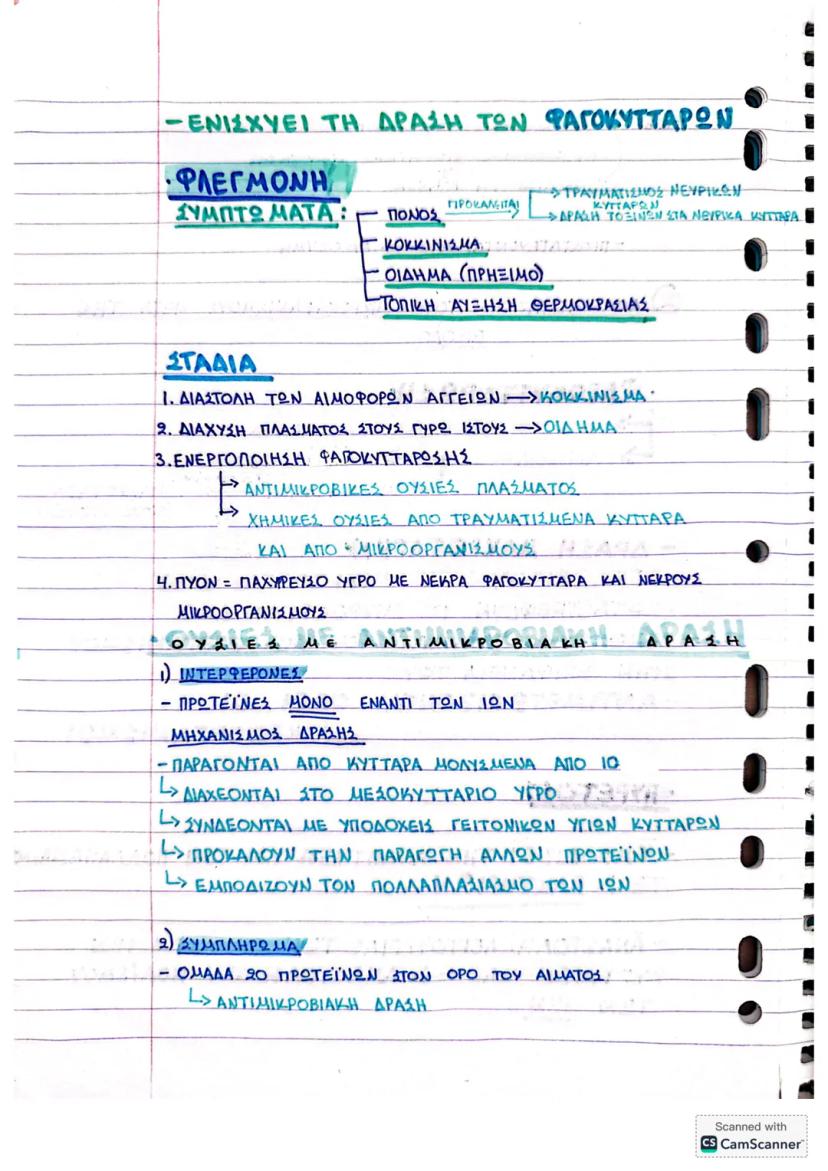 - ΕΝΙΣΧΥΕΙ ΤΗ ΔΡΑΣΗ ΤΩΝ ΦΑΓΟΚΥΤΤΑΡΩΝ
· ΦΛΕΓΜΟΝΗ
ΣΥΜΠΤΩΜΑΤΑ: ΠΟΝΟΣ ΠΡΟΚΑΛΕΙΤΑΙ → ΤΡΑΥΜΑΤΙΣΜΟΣ ΝΕΥΡΙΚΩΝ ΚΥΤΤΑΡΩΝ
→ ΔΡΑΣΗ ΤΟΞΙΝΩΝ ΣΤΑ ΝΕΥΡΙΚΑ ΚΥΤΤΑΡΑ
ΚΟΚΚΙΝΙΣΜΑ
ΟΙΔΗΜΑ (ΠΡΗΞΙΜΟ)
ΤΟΠΙΚΗ ΑΥΞΗΣΗ ΘΕΡΜΟΚΡΑΣΙΑΣ
ΣΤΑΔΙΑ
1. ΔΙΑΣΤΟΛΗ ΤΩΝ ΑΙΜΟΦΟΡΩΝ ΑΓΓΕΙΩΝ → ΚΟΚΚΙΝΙΣΜΑ
2. ΔΙΑΧΥΣΗ ΠΛΑΣΜΑΤΟΣ ΣΤΟΥΣ ΓΥΡΩ ΙΣΤΟΥΣ → ΟΙΔΗΜΑ
3. ΕΝΕΡΓΟΠΟΙΗΣΗ ΦΑΓΟΚΥΤΤΑΡΩΣΗΣ
→ ΑΝΤΙΜΙΚΡΟΒΙΚΕΣ ΟΥΣΙΕΣ ΠΛΑΣΜΑΤΟΣ
→ ΧΗΜΙΚΕΣ ΟΥΣΙΕΣ ΑΠΟ ΤΡΑΥΜΑΤΙΣΜΕΝΑ ΚΥΤΤΑΡΑ
ΚΑΙ ΑΠΟ ΜΙΚΡΟΟΡΓΑΝΙΣΜΟΥΣ
4. ΠΥΟΝ = ΠΑΧΥΡΕΥΣΟ ΥΓΡΟ ΜΕ ΝΕΚΡΑ ΦΑΓΟΚΥΤΤΑΡΑ ΚΑΙ ΝΕΚΡΟΥΣ
ΜΙΚΡΟΟΡΓΑΝΙΣΜΟΥΣ
· ΟΥΣΙΕΣ ΜΕ ΑΝΤΙΜΙΚΡΟΒΙΑΚΗ ΔΡΑΣΗ
1) ΙΝΤΕΡΦΕΡΟΝΕΣ
- ΠΡΩΤΕΪΝΕΣ ΜΟΝΟ ΕΝΑΝΤΙ ΤΩΝ ΙΩΝ
ΜΗΧΑΝΙΣΜΟΣ ΔΡΑΣΗΣ
- ΠΑΡΑΓΟΝΤΑΙ ΑΠΟ ΚΥΤΤΑΡΑ ΜΟΛΥΣΜΕΝΑ ΑΠΟ ΙΟ
↳ ΔΙΑΧΕΟΝΤΑΙ ΣΤΟ ΜΕΣΟΚΥΤΤΑΡΙΟ ΥΓΡΟ
↳ ΣΥΝΔΕΟΝΤΑΙ ΜΕ ΥΠΟΔΟΧΕΙΣ ΓΕΙΤΟΝΙΚΩΝ ΥΓΙΩΝ ΚΥΤΤΑΡΩΝ
↳ ΠΡΟΚΑΛΟΥΝ ΤΗΝ ΠΑΡΑΓΩΓΗ ΑΛΛΩΝ ΠΡΩΤΕΪΝΩΝ
↳ ΕΜΠΟΔΙΖΟΥΝ ΤΟΝ ΠΟΛΛΑΠΛΑΣΙΑΣΜΟ ΤΩΝ ΙΩΝ
2) ΣΥΜΠΛΗΡΩΜΑ
- ΟΜΑΔΑ 20 ΠΡΩΤΕΪΝΩΝ ΣΤΟΝ ΟΡΟ ΤΟΥ ΑΙΜΑΤΟΣ
↳ ΑΝΤΙΜΙΚΡΟΒΙΑΚΗ ΔΡΑΣΗ
Scanned with
CS CamScanner